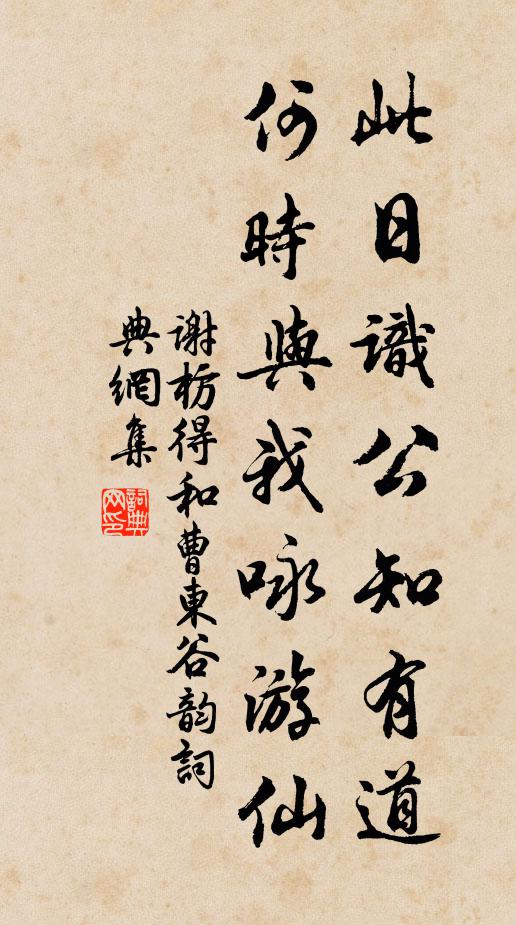 此日識公知有道
何時與我咏游仙
谢枋得和曹東谷韵詞
典網集
詞典网印